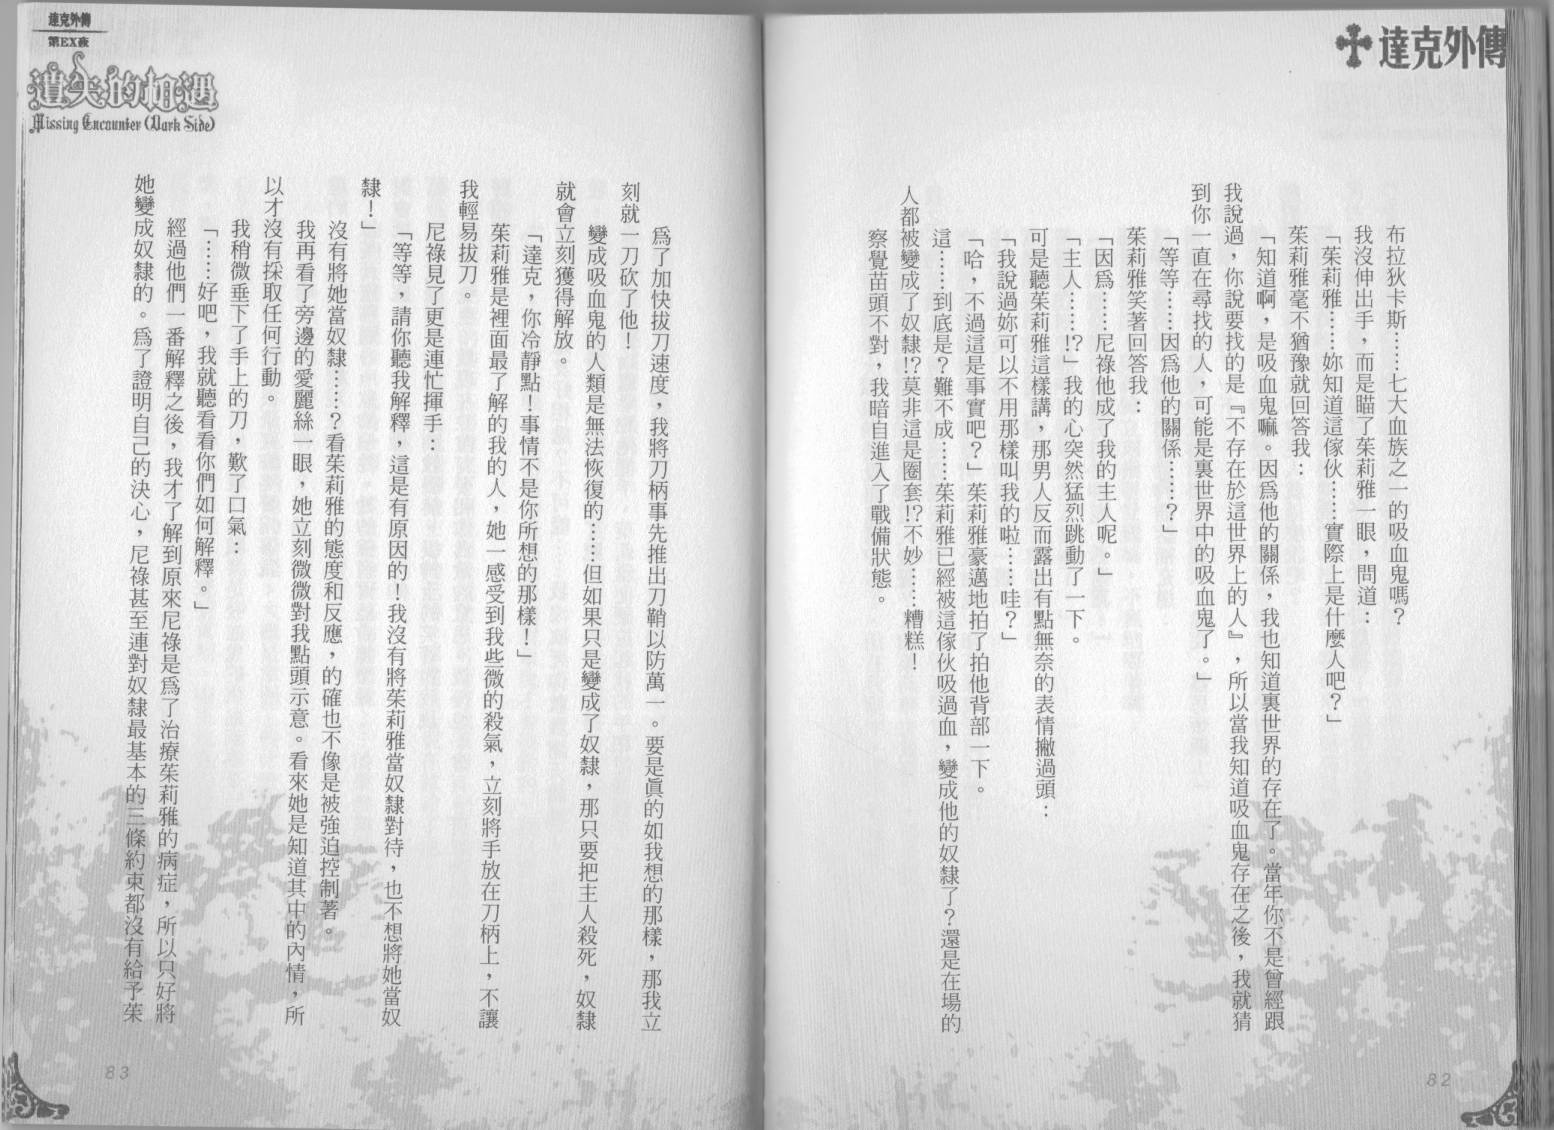 達克外傳
布拉狄卡斯……七大血族之一的吸血鬼嗎？
我沒伸出手，而是瞄了茱莉雅一眼，問道：
「茱莉雅……妳知道這傢伙……實際上是什麼人吧？」
茱莉雅毫不猶豫就回答我：
「知道啊，是吸血鬼嘛。因為他的關係，我也知道裏世界的存在了。當年你不是曾經跟
我說過，你說要找的是『不存在於這世界上的人』，所以當我知道吸血鬼存在之後，我就猜
到你一直在尋找的人，可能是裏世界中的吸血鬼了。」
「等等……因為他的關係……？」
茱莉雅笑著回答我：
「因為……尼祿他成了我的主人呢。」
「主人……!?」我的心突然猛烈跳動了一下。
可是聽茱莉雅這樣講，那男人反而露出有點無奈的表情撇過頭：
「我說過妳可以不用那樣叫我的啦……哇？」
「哈，不過這是事實吧？」茱莉雅豪邁地拍了拍他背部一下。
這……到底是？難不成……茱莉雅已經被這傢伙吸過血，變成他的奴隸了？還是在場的
人都被變成了奴隸!?莫非這是圈套!?不妙……糟糕！
察覺苗頭不對，我暗自進入了戰備狀態。
82
達克外傳
第EX夜
遺失的相遇
Missing Encounter (Dark Side)
為了加快拔刀速度，我將刀柄事先推出刀鞘以防萬一。要是真的如我想的那樣，那我立
刻就一刀砍了他！
變成吸血鬼的人類是無法恢復的……但如果只是變成了奴隸，那只要把主人殺死，奴隸
就會立刻獲得解放。
「達克，你冷靜點！事情不是你所想的那樣！」
茱莉雅是裡面最了解的我的人，她一感受到我些微的殺氣，立刻將手放在刀柄上，不讓
我輕易拔刀。
尼祿見了更是連忙揮手：
「等等，請你聽我解釋，這是有原因的！我沒有將茱莉雅當奴隸對待，也不想將她當奴
隸！」
沒有將她當奴隸……？看茱莉雅的態度和反應，的確也不像是被強迫控制著。
我再看了旁邊的愛麗絲一眼，她立刻微微對我點頭示意。看來她是知道其中的內情，所
以才沒有採取任何行動。
我稍微垂下了手上的刀，歎了口氣：
「……好吧，我就聽看看你們如何解釋。」
經過他們一番解釋之後，我才了解到原來尼祿是為了治療茱莉雅的病症，所以只好將
她變成奴隸的。為了證明自己的決心，尼祿甚至連對奴隸最基本的三條約束都沒有給予茱
83